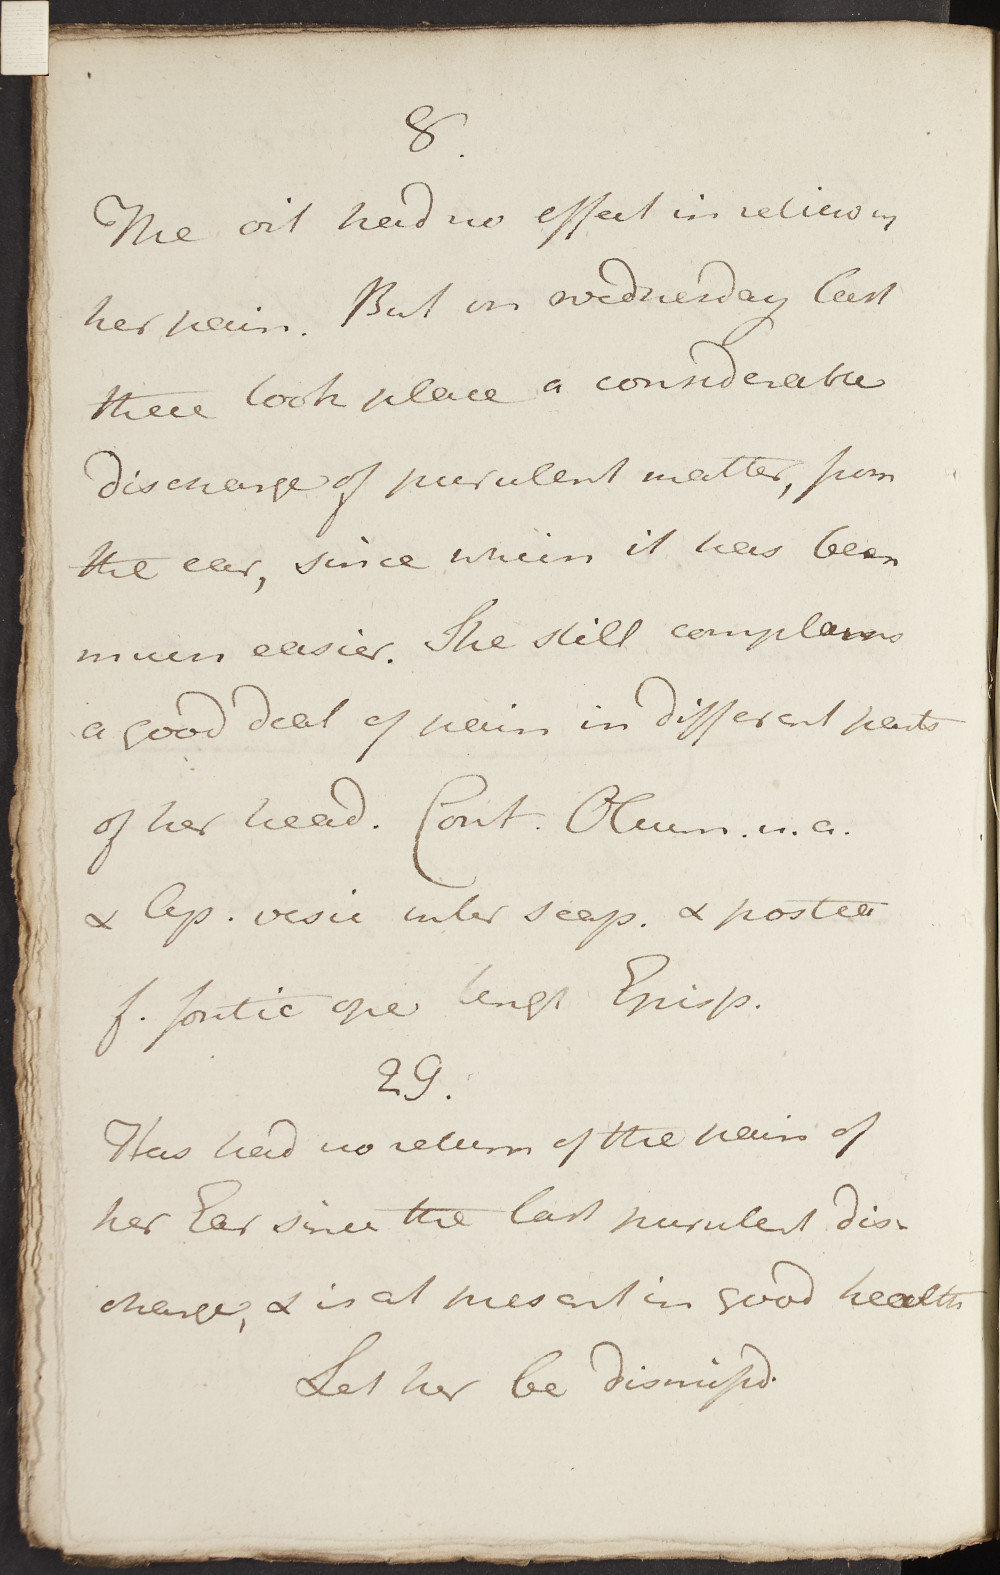 8.
The oil had no effect in relieving
her pain. But on wednesday last
there took place a considerable
discharge of purulent matter, from
the ear, since when it has been
much easier. She still complains
a good deal of pain in different parts
of her head. Cont. Oleum. u. a.
& Ap. vesic inter scap. & postea
f. fontic ope Ungt Episp.
29.
Has had no return of the pain of
her Ear since the last purulent dis-
charge, & is at present in good health
Let her be dismissd.